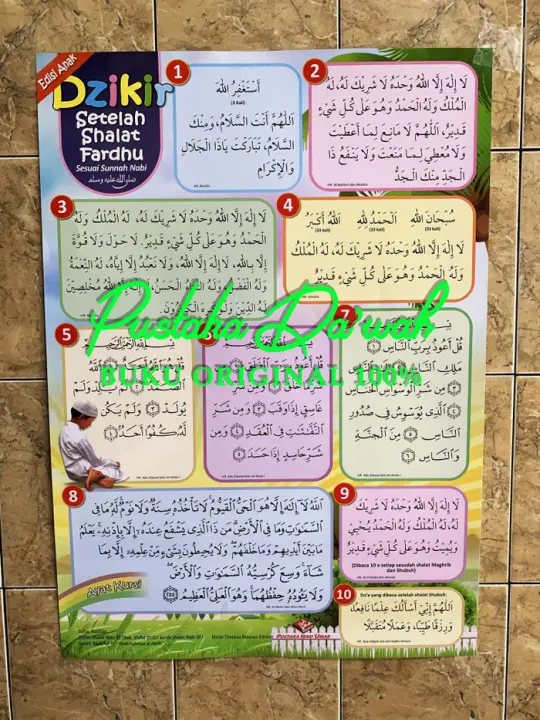 Edisi Anak
Dzikir
Setelah
Shalat
Fardhu
Sesuai Sunnah Nabi
1
أَسْتَغْفِرُ اللهَ
(3 kali)
اَللَّهُمَّ أَنْتَ السَّلَامُ، وَمِنْكَ
السَّلَامُ، تَبَارَكْتَ يَاذَا الْجَلَالِ
وَالْإِكْرَامِ
HR. Muslim
2
لَا إِلٰهَ إِلَّا اللهُ وَحْدَهُ لَا شَرِيكَ لَهُ، لَهُ
الْمُلْكُ وَلَهُ الْحَمْدُ وَهُوَ عَلَى كُلِّ شَيْءٍ
قَدِيرٌ، اَللَّهُمَّ لَا مَانِعَ لِمَا أَعْطَيْتَ
وَلَا مُعْطِيَ لِمَا مَنَعْتَ وَلَا يَنْفَعُ ذَا
الْجَدِّ مِنْكَ الْجَدُّ
HR. Al-Bukhari dan Muslim
3
لَا إِلٰهَ إِلَّا اللهُ وَحْدَهُ لَا شَرِيكَ لَهُ، لَهُ الْمُلْكُ وَلَهُ
الْحَمْدُ وَهُوَ عَلَى كُلِّ شَيْءٍ قَدِيرٌ. لَا حَوْلَ وَلَا قُوَّةَ
إِلَّا بِاللهِ، لَا إِلٰهَ إِلَّا اللهُ، وَلَا نَعْبُدُ إِلَّا إِيَّاهُ، لَهُ النِّعْمَةُ
وَلَهُ الْفَضْلُ وَلَهُ الثَّنَاءُ الْحَسَنُ، لَا إِلٰهَ إِلَّا اللهُ مُخْلِصِينَ
لَهُ الدِّينَ وَلَوْ كَرِهَ الْكَافِرُونَ
4
سُبْحَانَ اللهِ اَلْحَمْدُ لِلهِ اَللهُ أَكْبَرُ
(33 kali) (33 kali) (33 kali)
لَا إِلٰهَ إِلَّا اللهُ وَحْدَهُ لَا شَرِيكَ لَهُ، لَهُ الْمُلْكُ
وَلَهُ الْحَمْدُ وَهُوَ عَلَى كُلِّ شَيْءٍ قَدِيرٌ
HR. Muslim
Pustaka Da'wah
BUKU ORIGINAL 100%
5
قُلْ هُوَ اللَّهُ أَحَدٌ اللَّهُ
الصَّمَدُ لَمْ يَلِدْ وَلَمْ
يُولَدْ وَلَمْ يَكُن
لَّهُ كُفُوًا أَحَدٌ
قُلْ أَعُوذُ بِرَبِّ الْفَلَقِ
غَاسِقٍ إِذَا وَقَبَ وَمِن شَرِّ
النَّفَّاثَاتِ فِي الْعُقَدِ وَمِن
شَرِّ حَاسِدٍ إِذَا حَسَدَ
7
قُلْ أَعُوذُ بِرَبِّ النَّاسِ
مَلِكِ النَّاسِ
مِن شَرِّ الْوَسْوَاسِ الْخَنَّاسِ
الَّذِي يُوَسْوِسُ فِي صُدُورِ
النَّاسِ مِنَ الْجِنَّةِ
وَالنَّاسِ
8
اللَّهُ لَا إِلَٰهَ إِلَّا هُوَ الْحَيُّ الْقَيُّومُ لَا تَأْخُذُهُ سِنَةٌ وَلَا نَوْمٌ لَهُ مَا فِي
السَّمَاوَاتِ وَمَا فِي الْأَرْضِ مَن ذَا الَّذِي يَشْفَعُ عِندَهُ إِلَّا بِإِذْنِهِ يَعْلَمُ
مَا بَيْنَ أَيْدِيهِمْ وَمَا خَلْفَهُمْ وَلَا يُحِيطُونَ بِشَيْءٍ مِّنْ عِلْمِهِ إِلَّا بِمَا
شَاءَ وَسِعَ كُرْسِيُّهُ السَّمَاوَاتِ وَالْأَرْضَ
وَلَا يَئُودُهُ حِفْظُهُمَا وَهُوَ الْعَلِيُّ الْعَظِيمُ
Ayat Kursi
9
لَا إِلٰهَ إِلَّا اللهُ وَحْدَهُ لَا شَرِيكَ
لَهُ، لَهُ الْمُلْكُ وَلَهُ الْحَمْدُ يُحْيِي
وَيُمِيتُ وَهُوَ عَلَى كُلِّ شَيْءٍ قَدِيرٌ
(Dibaca 10 x setiap sesudah shalat Maghrib
dan Shubuh)
10
Do'a yang dibaca setelah shalat Shubuh:
اَللَّهُمَّ إِنِّي أَسْأَلُكَ عِلْمًا نَافِعًا،
وَرِزْقًا طَيِّبًا، وَعَمَلًا مُتَقَبَّلًا
PUSTAKA IBNU 'UMAR